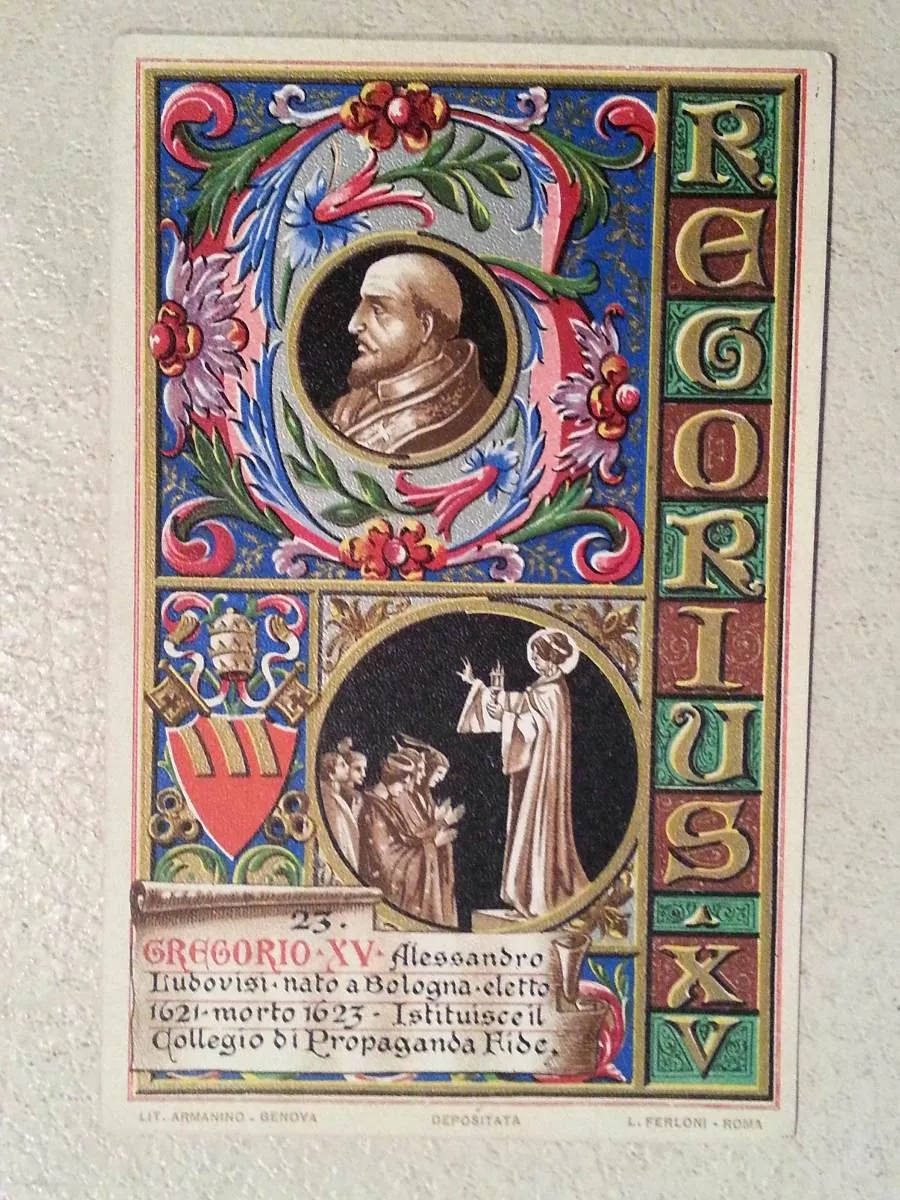 REGORIUS·XV
23.
GREGORIO·XV· Alessandro
Ludovisi·nato a Bologna·eletto
1621·morto 1623 - Istituisce il
Collegio di Propaganda Fide.
LIT. ARMANINO - GENOVA
DEPOSITATA
L. FERLONI - ROMA